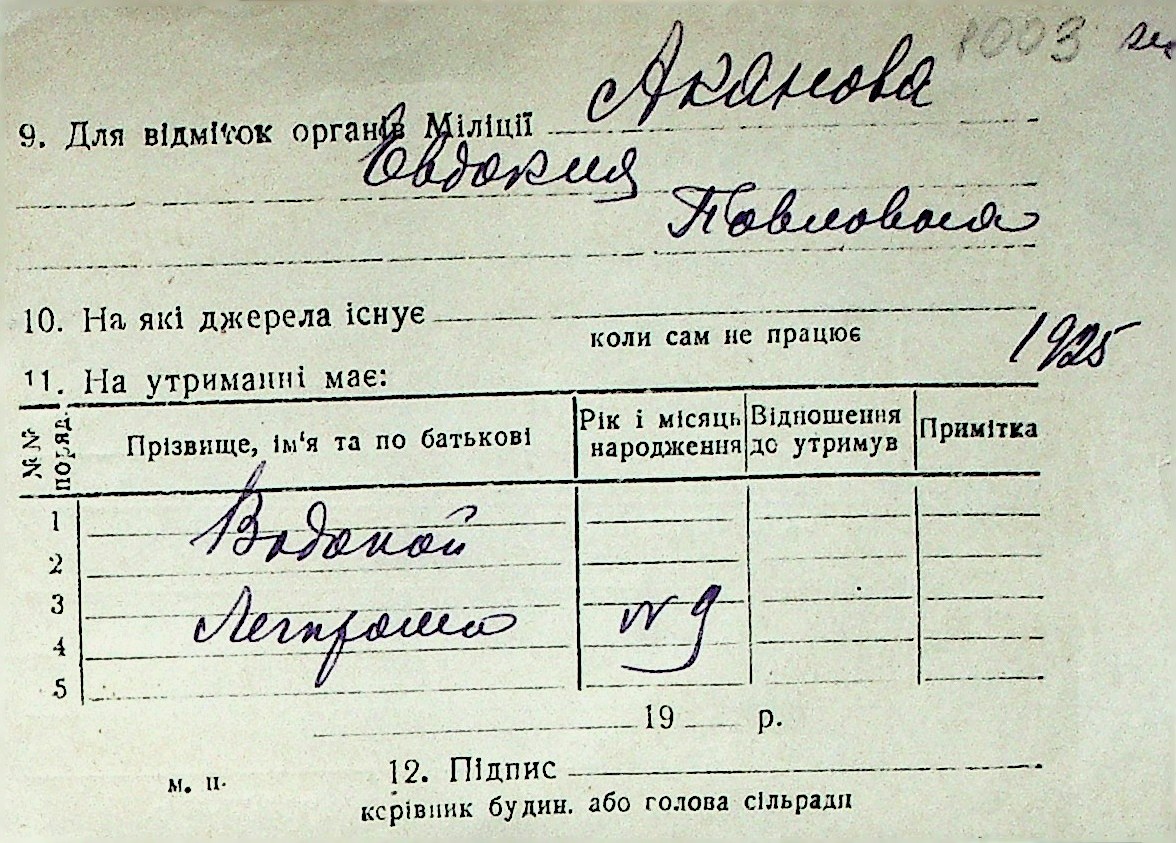 1003
Аканова
9. Для відміток органів Міліції
Евдокия
Павловна
10. На які джерела існує
коли сам не працює
1925
11. На утриманні має:
№№ поряд.
Прізвище, ім‘я та по батькові
Рік і місяць народження
Відношення до утримув
Примітка
1
Водопой
2
3
Легпрома № 9
4
5
19 р.
м. п.
12. Підпис
керівник будин. або голова сільради